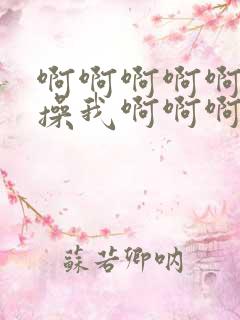 啊啊啊啊啊
操我啊啊啊
蘇若卿吶